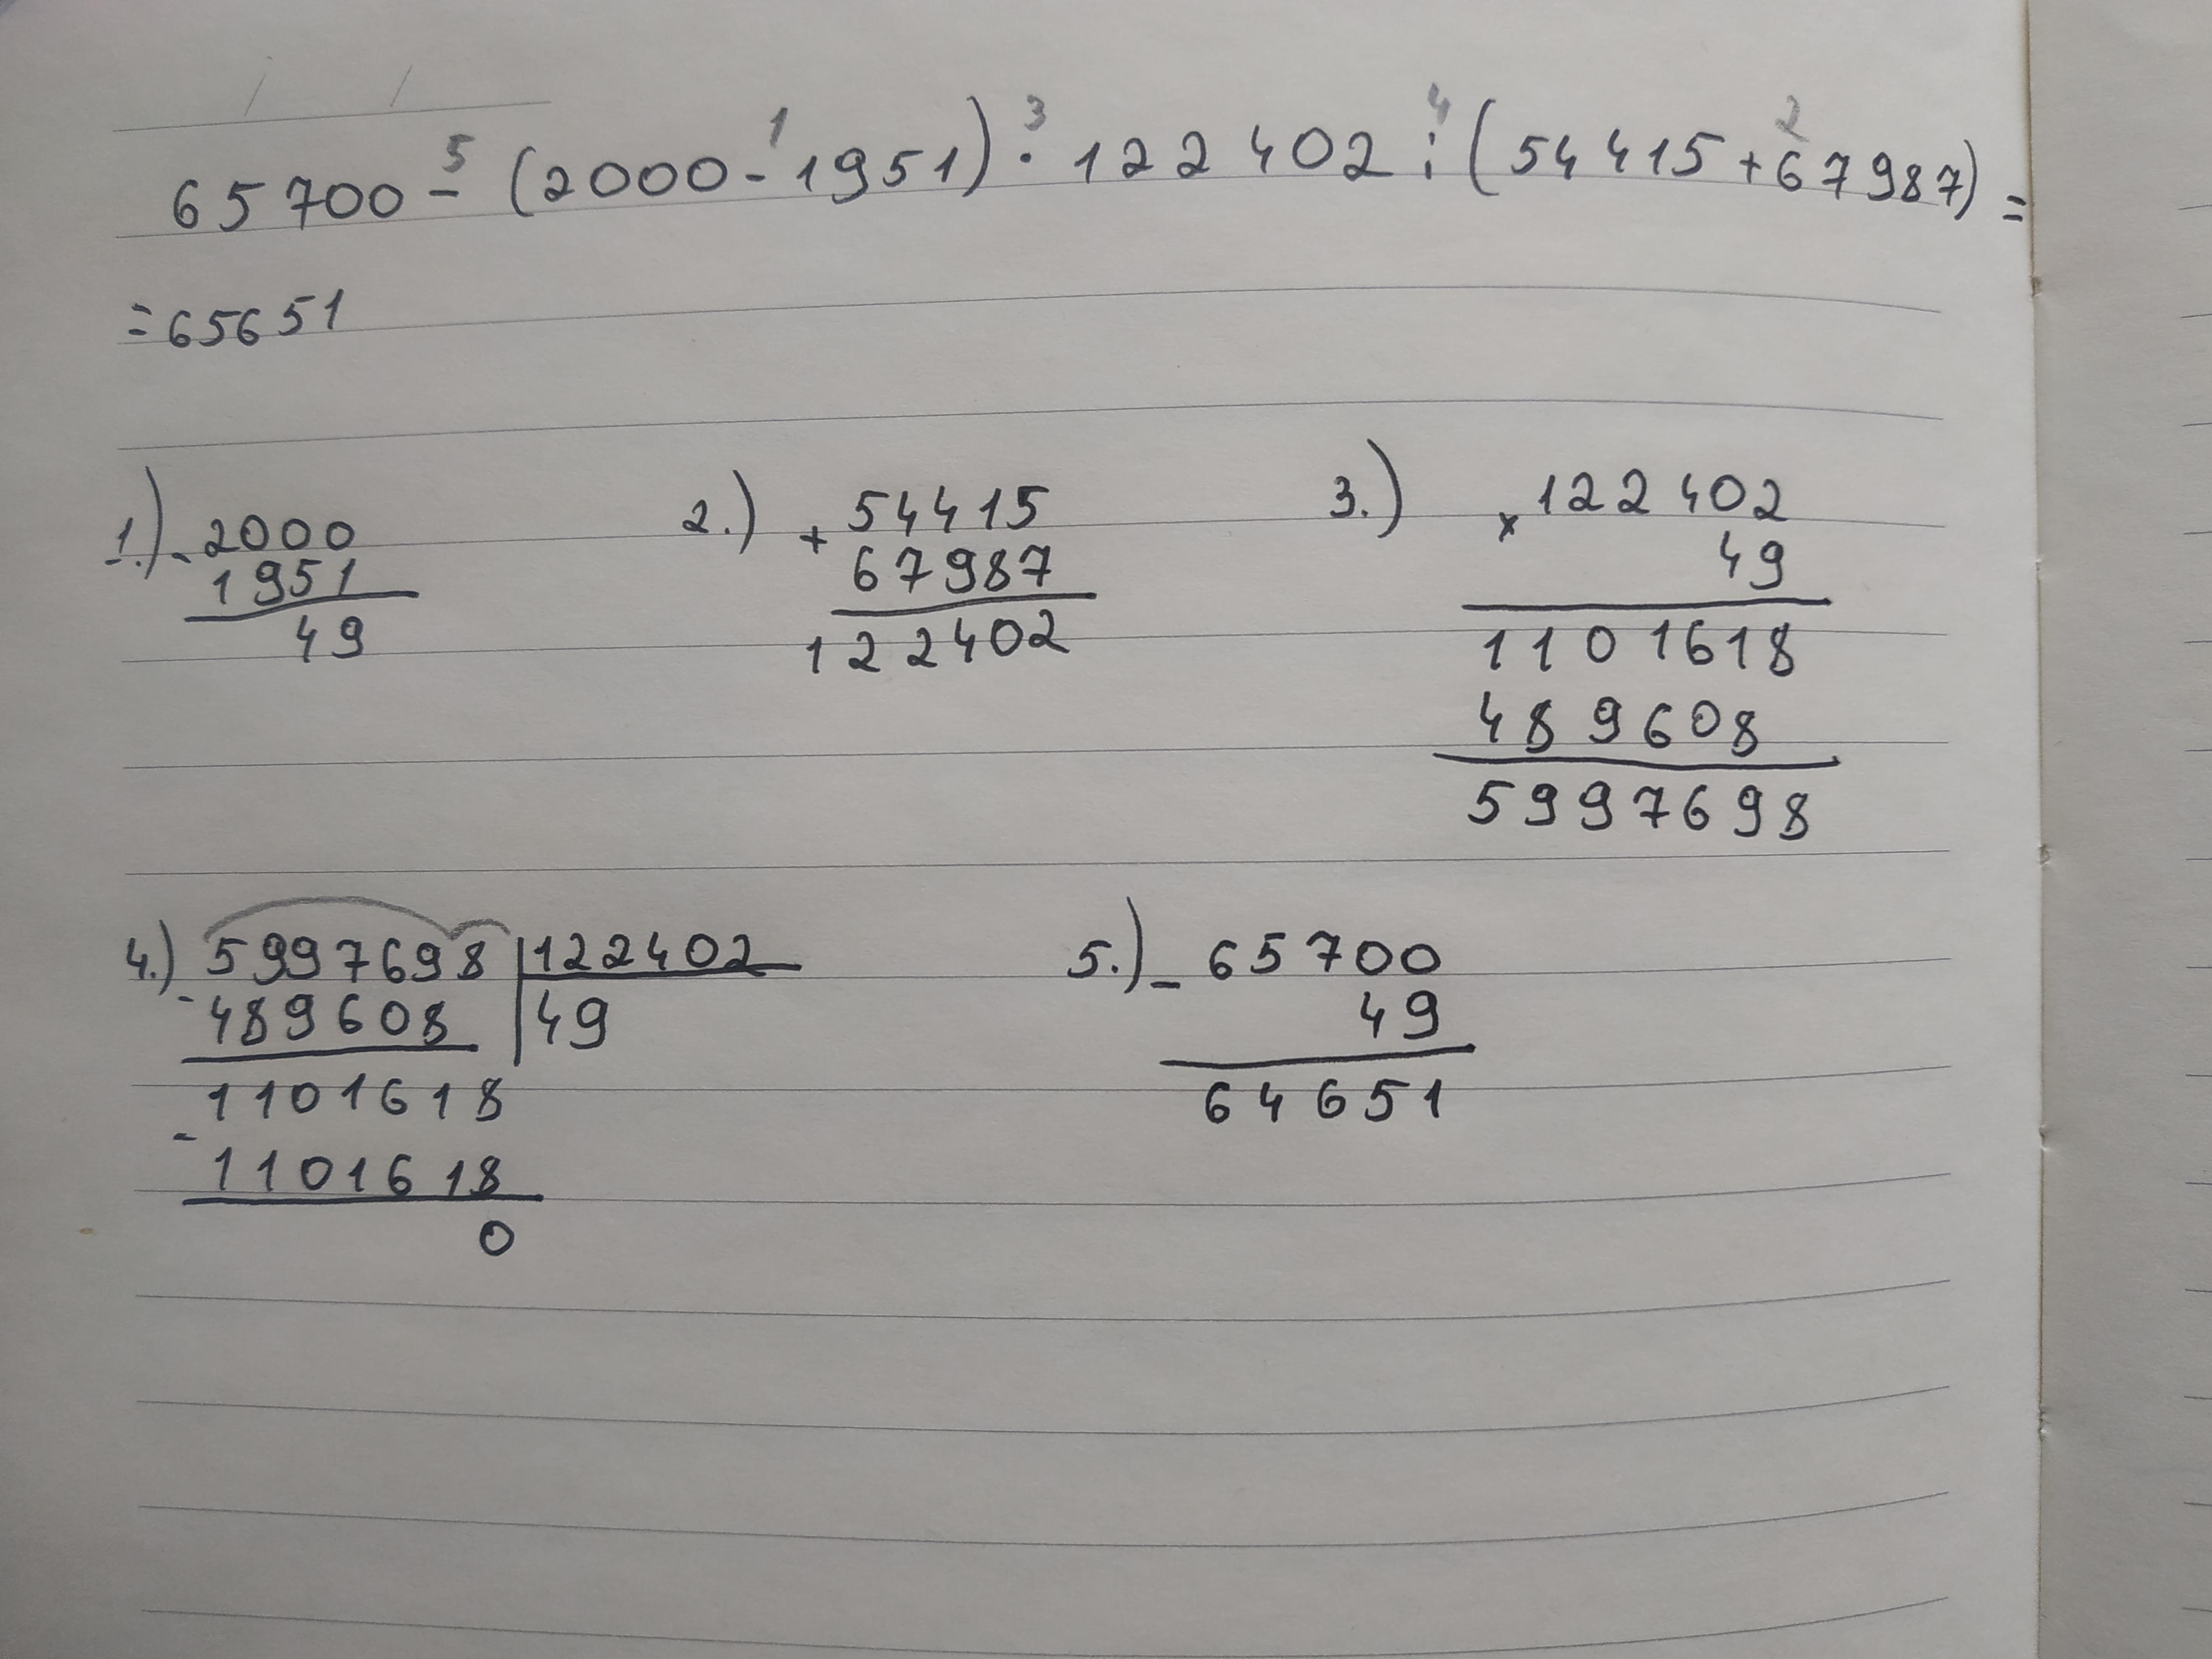 65700 - (2000 - 1951) · 122402 : (54415 + 67987) =
5 1 3 4 2
= 65651
1.) - 2000
1951
49
2.) + 54415
67987
122402
3.) x 122402
49
1101618
489608
5997698
4.) 5997698 | 122402
- 489608 | 49
1101618
- 1101618
0
5.) - 65700
49
64651